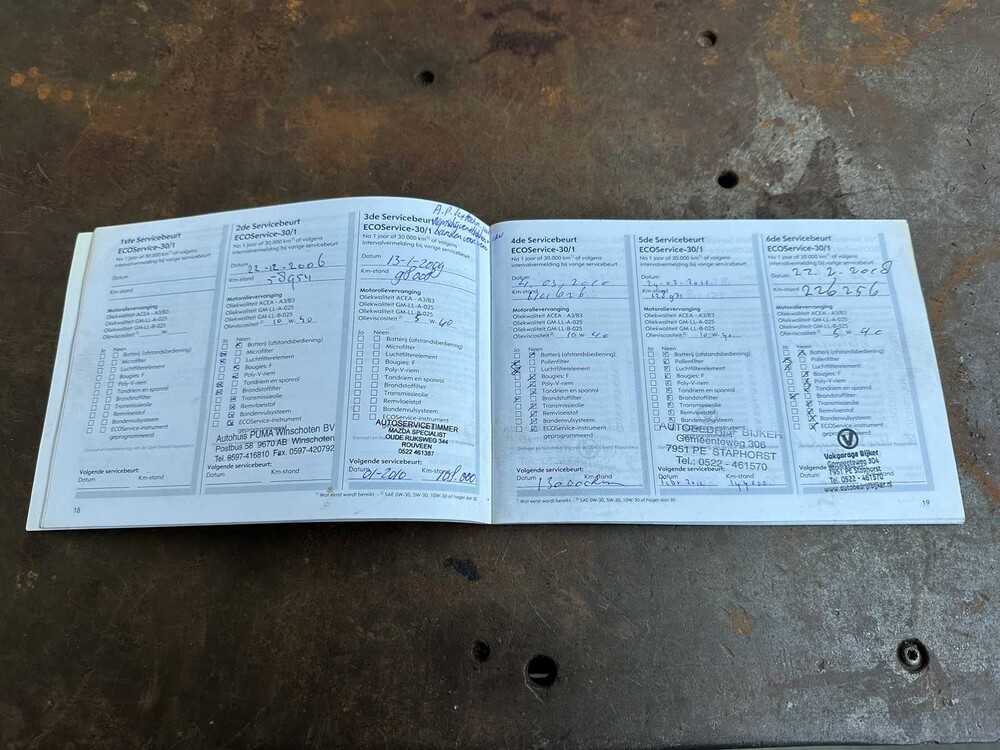 1ste Servicebeurt
ECOService-30/1
Na 1 jaar of 30.000 km¹⁾ of volgens
intervalvermelding bij vorige servicebeurt
Datum
Km-stand
Motorolievervanging
Oliekwaliteit ACEA - A3/B3
Oliekwaliteit GM-LL-A-025
Oliekwaliteit GM-LL-B-025
Olieviscositeit²⁾ w.
Ja Neen
Batterij (afstandsbediening)
Microfilter
Luchtfilterelement
Bougies: F
Poly-V-riem
Tandriem en spanrol
Brandstoffilter
Transmissieolie
Remvloeistof
Bandenmulsysteem
ECOService-instrument
geprogrammeerd
Volgende servicebeurt:
Datum Km-stand
18
2de Servicebeurt
ECOService-30/1
Na 1 jaar of 30.000 km¹⁾ of volgens
intervalvermelding bij vorige servicebeurt
Datum 22-12-2006
Km-stand 58954
Motorolievervanging
Oliekwaliteit ACEA - A3/B3
Oliekwaliteit GM-LL-A-025
Oliekwaliteit GM-LL-B-025
Olieviscositeit²⁾ 10 w. 40
Ja Neen
Batterij (afstandsbediening)
Microfilter
Luchtfilterelement
Bougies: F
Poly-V-riem
Tandriem en spanrol
Brandstoffilter
Transmissieolie
Remvloeistof
Bandenmulsysteem
ECOService-instrument
Autohuis PUMA Winschoten BV
Postbus 58 9670 AB Winschoten
Tel. 0597-416810 Fax. 0597-420792
Volgende servicebeurt:
Datum Km-stand
3de Servicebeurt
ECOService-30/1
Na 1 jaar of 30.000 km¹⁾ of volgens
intervalvermelding bij vorige servicebeurt
Datum 13-1-2009
Km-stand 98000
Motorolievervanging
Oliekwaliteit ACEA - A3/B3
Oliekwaliteit GM-LL-A-025
Oliekwaliteit GM-LL-B-025
Olieviscositeit²⁾ 5 w. 40
Ja Neen
Batterij (afstandsbediening)
Microfilter
Luchtfilterelement
Bougies: F
Poly-V-riem
Tandriem en spanrol
Brandstoffilter
Transmissieolie
Remvloeistof
Bandenmulsysteem
ECOService-instrument
geprogrammeerd
AUTOSERVICETIMMER
MAZDA SPECIALIST
OUDE RIJKSWEG 344
ROUVEEN
0522 461387
Volgende servicebeurt:
Datum 01-2010 Km-stand 108.000
¹⁾ Wat eerst wordt bereikt. - ²⁾ SAE 0W-30, 5W-30, 10W-30 of hoger dan 30
4de Servicebeurt
ECOService-30/1
Na 1 jaar of 30.000 km¹⁾ of volgens
intervalvermelding bij vorige servicebeurt
Datum
Km-stand
Motorolievervanging
Oliekwaliteit ACEA - A3/B3
Oliekwaliteit GM-LL-A-025
Oliekwaliteit GM-LL-B-025
Olieviscositeit²⁾ 10 w. 40
Ja Neen
Batterij (afstandsbediening)
Pollenfilter
Luchtfilterelement
Bougies: F
Poly-V-riem
Tandriem en spanrol
Brandstoffilter
Transmissieolie
Remvloeistof
Bandenmulsysteem
ECOService-instrument
geprogrammeerd
Volgende servicebeurt:
Datum Km-stand
130.000km
5de Servicebeurt
ECOService-30/1
Na 1 jaar of 30.000 km¹⁾ of volgens
intervalvermelding bij vorige servicebeurt
Datum
Km-stand
Motorolievervanging
Oliekwaliteit ACEA - A3/B3
Oliekwaliteit GM-LL-A-025
Oliekwaliteit GM-LL-B-025
Olieviscositeit²⁾ 10 w. 40
Ja Neen
Batterij (afstandsbediening)
Pollenfilter
Luchtfilterelement
Bougies: F
Poly-V-riem
Tandriem en spanrol
Brandstoffilter
Transmissieolie
Remvloeistof
Bandenmulsysteem
ECOService-instrument
geprogrammeerd
BIJKER
Gemeenteweg 306
7951 PE STAPHORST
Tel.: 0522 - 461570
Volgende servicebeurt:
Datum Km-stand
¹⁾ Wat eerst wordt bereikt. - ²⁾ SAE 0W-30, 5W-30, 10W-30 of hoger dan 30
6de Servicebeurt
ECOService-30/1
Na 1 jaar of 30.000 km¹⁾ of volgens
intervalvermelding bij vorige servicebeurt
Datum 22-2-2018
Km-stand 226256
Motorolievervanging
Oliekwaliteit ACEA - A3/B3
Oliekwaliteit GM-LL-A-025
Oliekwaliteit GM-LL-B-025
Olieviscositeit²⁾ 5 w. 40
Ja Neen
Batterij (afstandsbediening)
Pollenfilter
Luchtfilterelement
Bougies: F
Poly-V-riem
Tandriem en spanrol
Brandstoffilter
Transmissieolie
Remvloeistof
Bandenmulsysteem
ECOService-instrument
geprogrammeerd
Vakgarage Bijker
Gemeenteweg 304
7951 PE Staphorst
Tel. 0522 - 461570
www.autobedrijfbijker.nl
Volgende servicebeurt:
Datum
19